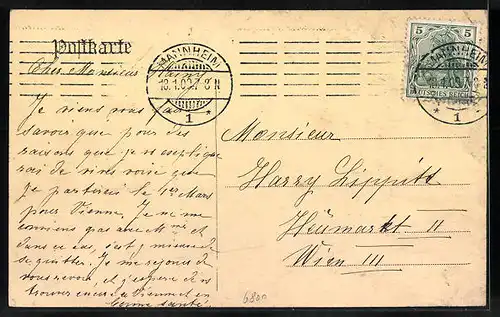 Postkarte
MANNHEIM
18.1.09.7-8 N
* 1 *
5 5
DEUTSCHES REICH
MANNHEIM
18.1.09.
* 1 *
Cher Monsieur
Je viens vous faire
savoir que pour des
raisons que je vs explique
rai de vive voix que
je partirai le 1er Mars
pour Vienne. Je ne me
conviens pas avec Mme et
dans ce cas, c'est mieux de
se quitter. Me rejouis de
vous revoir et j'espère de vs
trouver en
bonne santé
Monsieur
Harry Lippitt
Heumarkt II
Wien III
6800